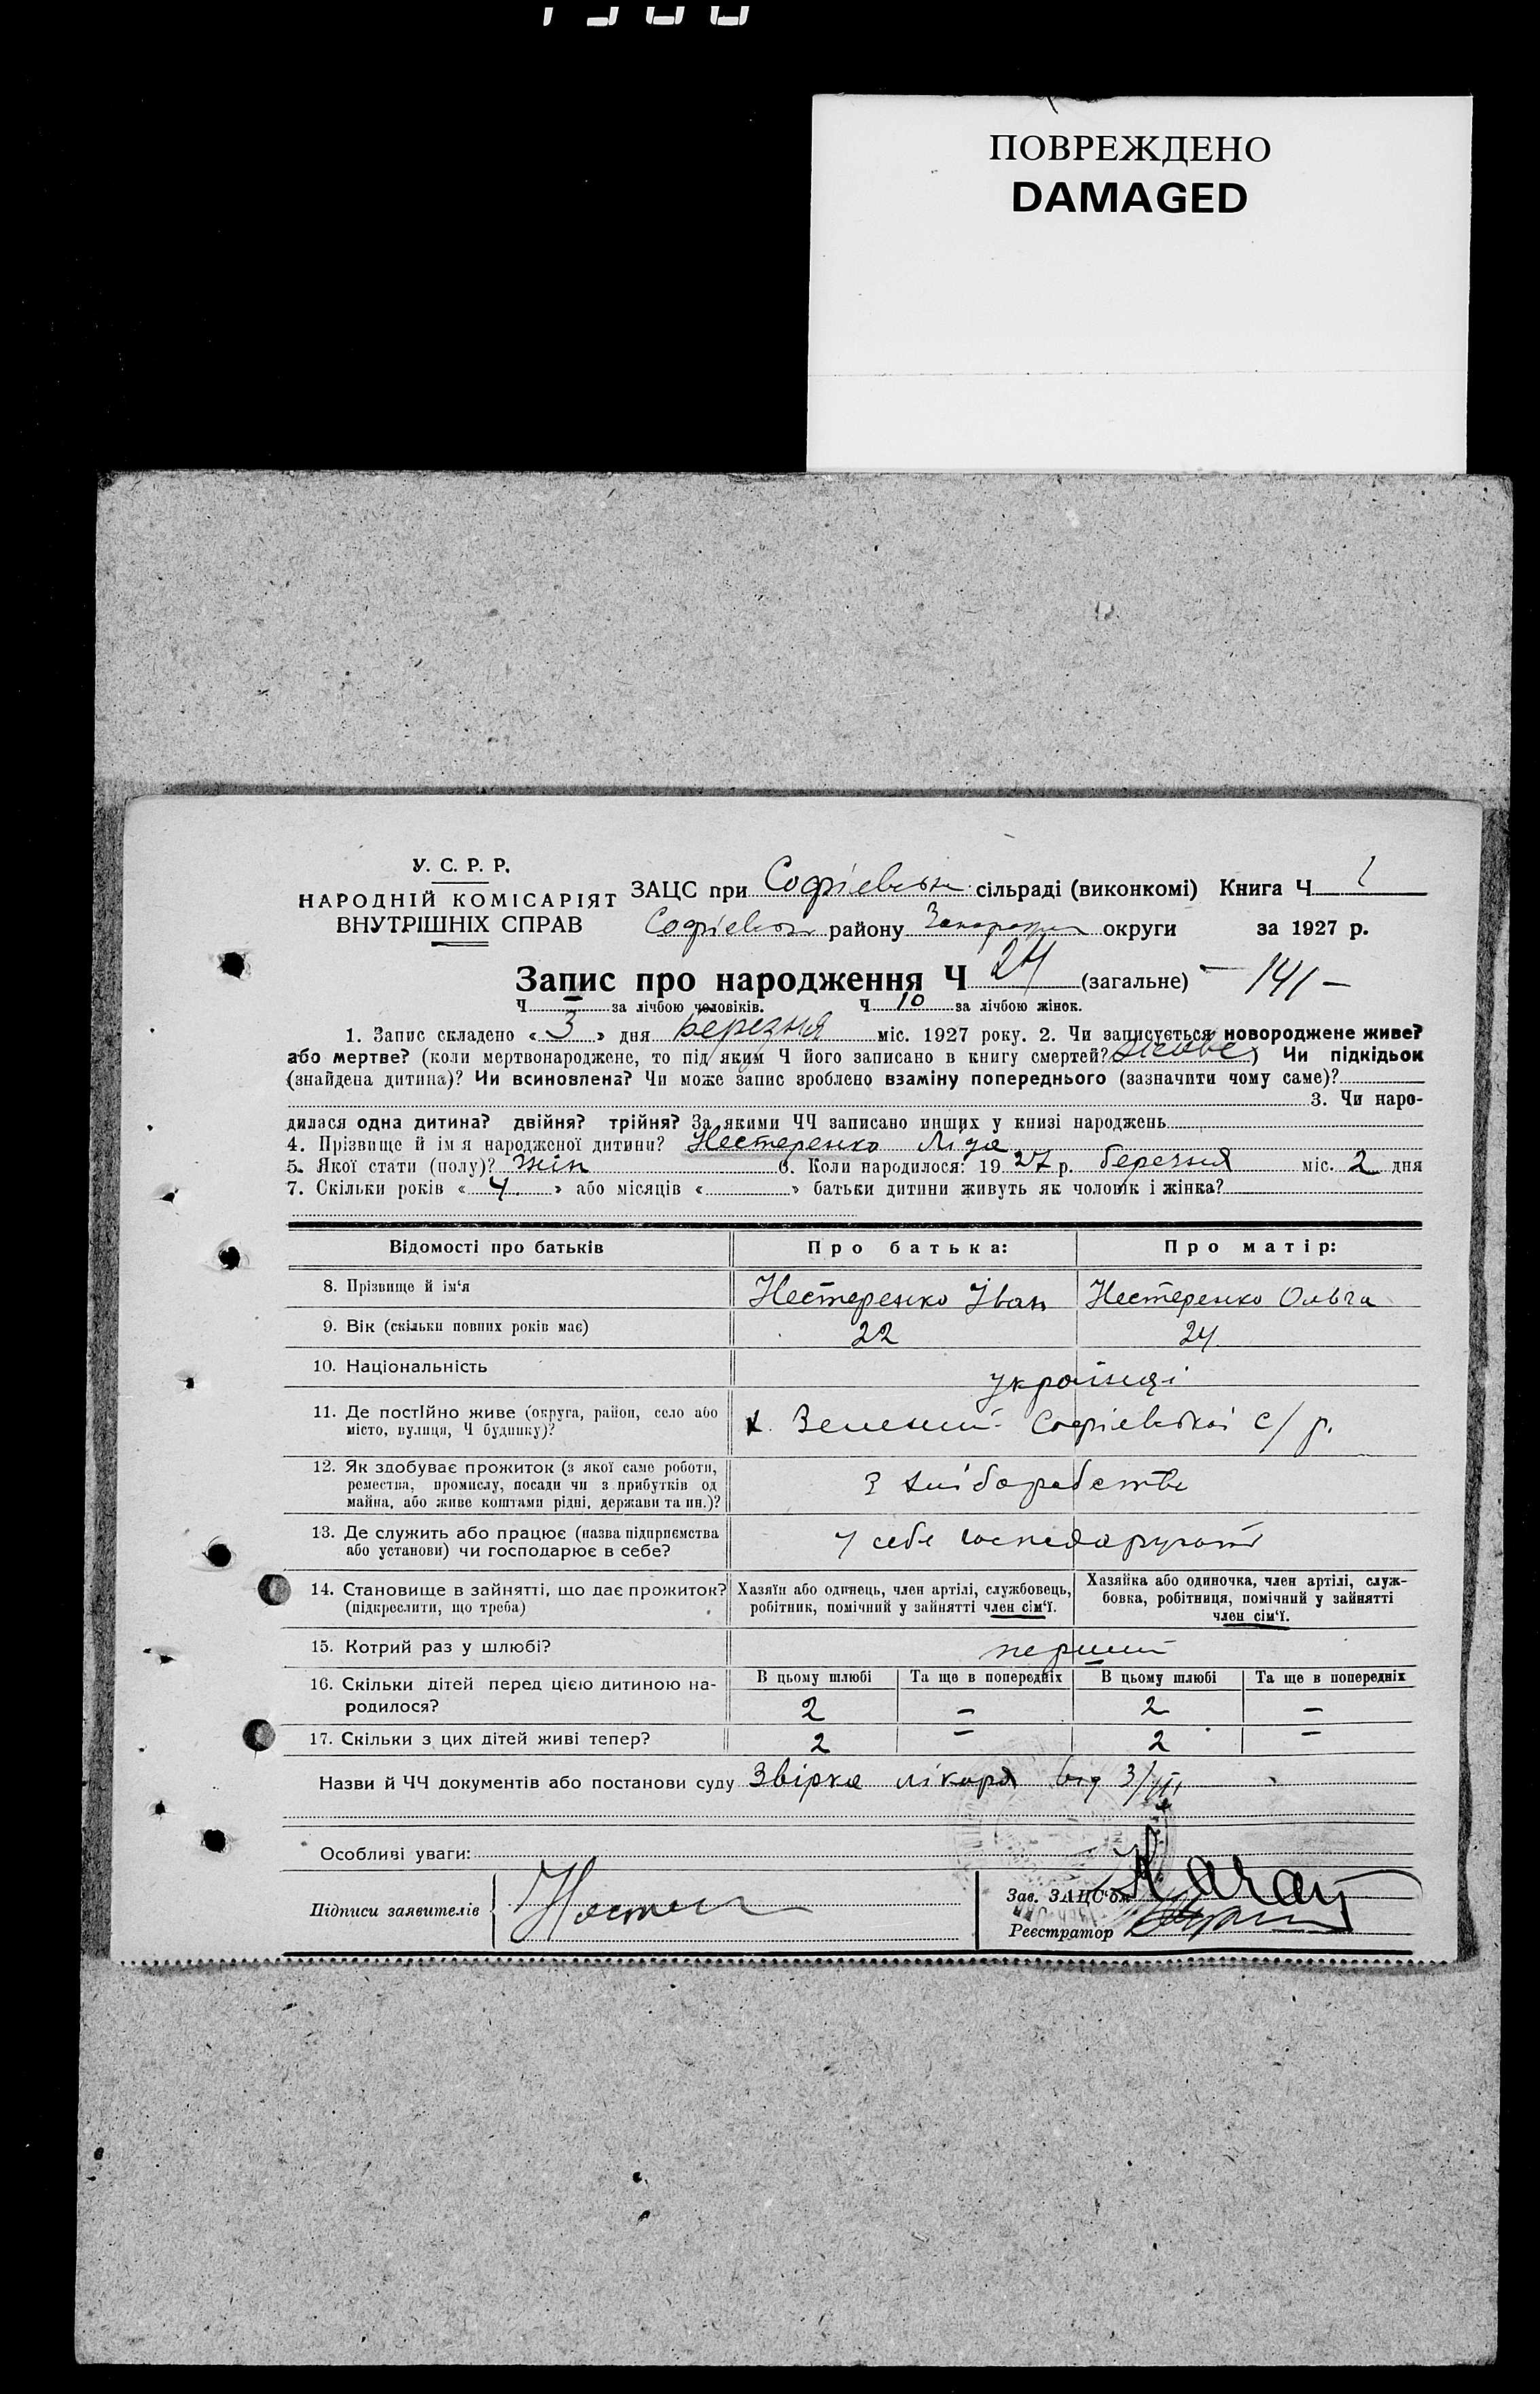 ПОВРЕЖДЕНО
DAMAGED
У. С. Р. Р.
НАРОДНІЙ КОМІСАРІЯТ
ВНУТРІШНІХ СПРАВ
ЗАЦС при Софіевськ сільраді (виконкомі) Книга Ч 1
Софіевськ району округи за 1927 р.
Запис про народження Ч 24 (загальне) - 141 -
Ч - за лічбою чоловіків. Ч 10 за лічбою жінок.
1. Запис складено « 3 » дня березня міс. 1927 року. 2. Чи записується новороджене живе?
або мертве? (коли мертвонароджене, то під яким Ч його записано в книгу смертей? живе) Чи підкідьок
(знайдена дитина)? Чи всиновлена? Чи може запис зроблено взаміну попереднього (зазначити чому саме)?
3. Чи наро-
дилася одна дитина? двійня? трійня? За якими ЧЧ записано инших у книзі народжень
4. Прізвище й ім я народженої дитини? Нестеренко Ліда
5. Якої стати (полу)? жін 6. Коли народилося: 19 27 р. березня міс. 2 дня
7. Скільки років « 4 » або місяців « » батьки дитини живуть як чоловік і жінка?
Відомості про батьків Про батька: Про матір:
8. Прізвище й ім'я Нестеренко Іван Нестеренко Ольга
9. Вік (скільки повних років має) 22 24
10. Національність українці
11. Де постійно живе (округа, район, село або
місто, вулиця, Ч будинку)? х. Зелений Софіевської с/р.
12. Як здобуває прожиток (з якої саме роботи,
ремества, промислу, посади чи з прибутків од
майна, або живе коштами рідні, держави та ин.)?
З хліборобства
13. Де служить або працює (назва підприємства
або установи) чи господарює в себе?
У себе господарують
14. Становище в зайнятті, що дає прожиток?
(підкреслити, що треба)
Хазяїн або одинець, член артілі, службовець,
робітник, помічний у зайнятті член сім'ї.
Хазяйка або одиночка, член артілі, служ-
бовка, робітниця, помічний у зайнятті
член сім'ї.
15. Котрий раз у шлюбі? перший
16. Скільки дітей перед цією дитиною на-
родилося?
В цьому шлюбі Та ще в попередніх В цьому шлюбі Та ще в попередніх
2 - 2 -
17. Скільки з цих дітей живі тепер? 2 - 2 -
Назви й ЧЧ документів або постанови суду Звірка лікаря від 3/III
Особливі уваги:
Підписи заявителів
Зав. ЗАЦС'ом
Реєстратор